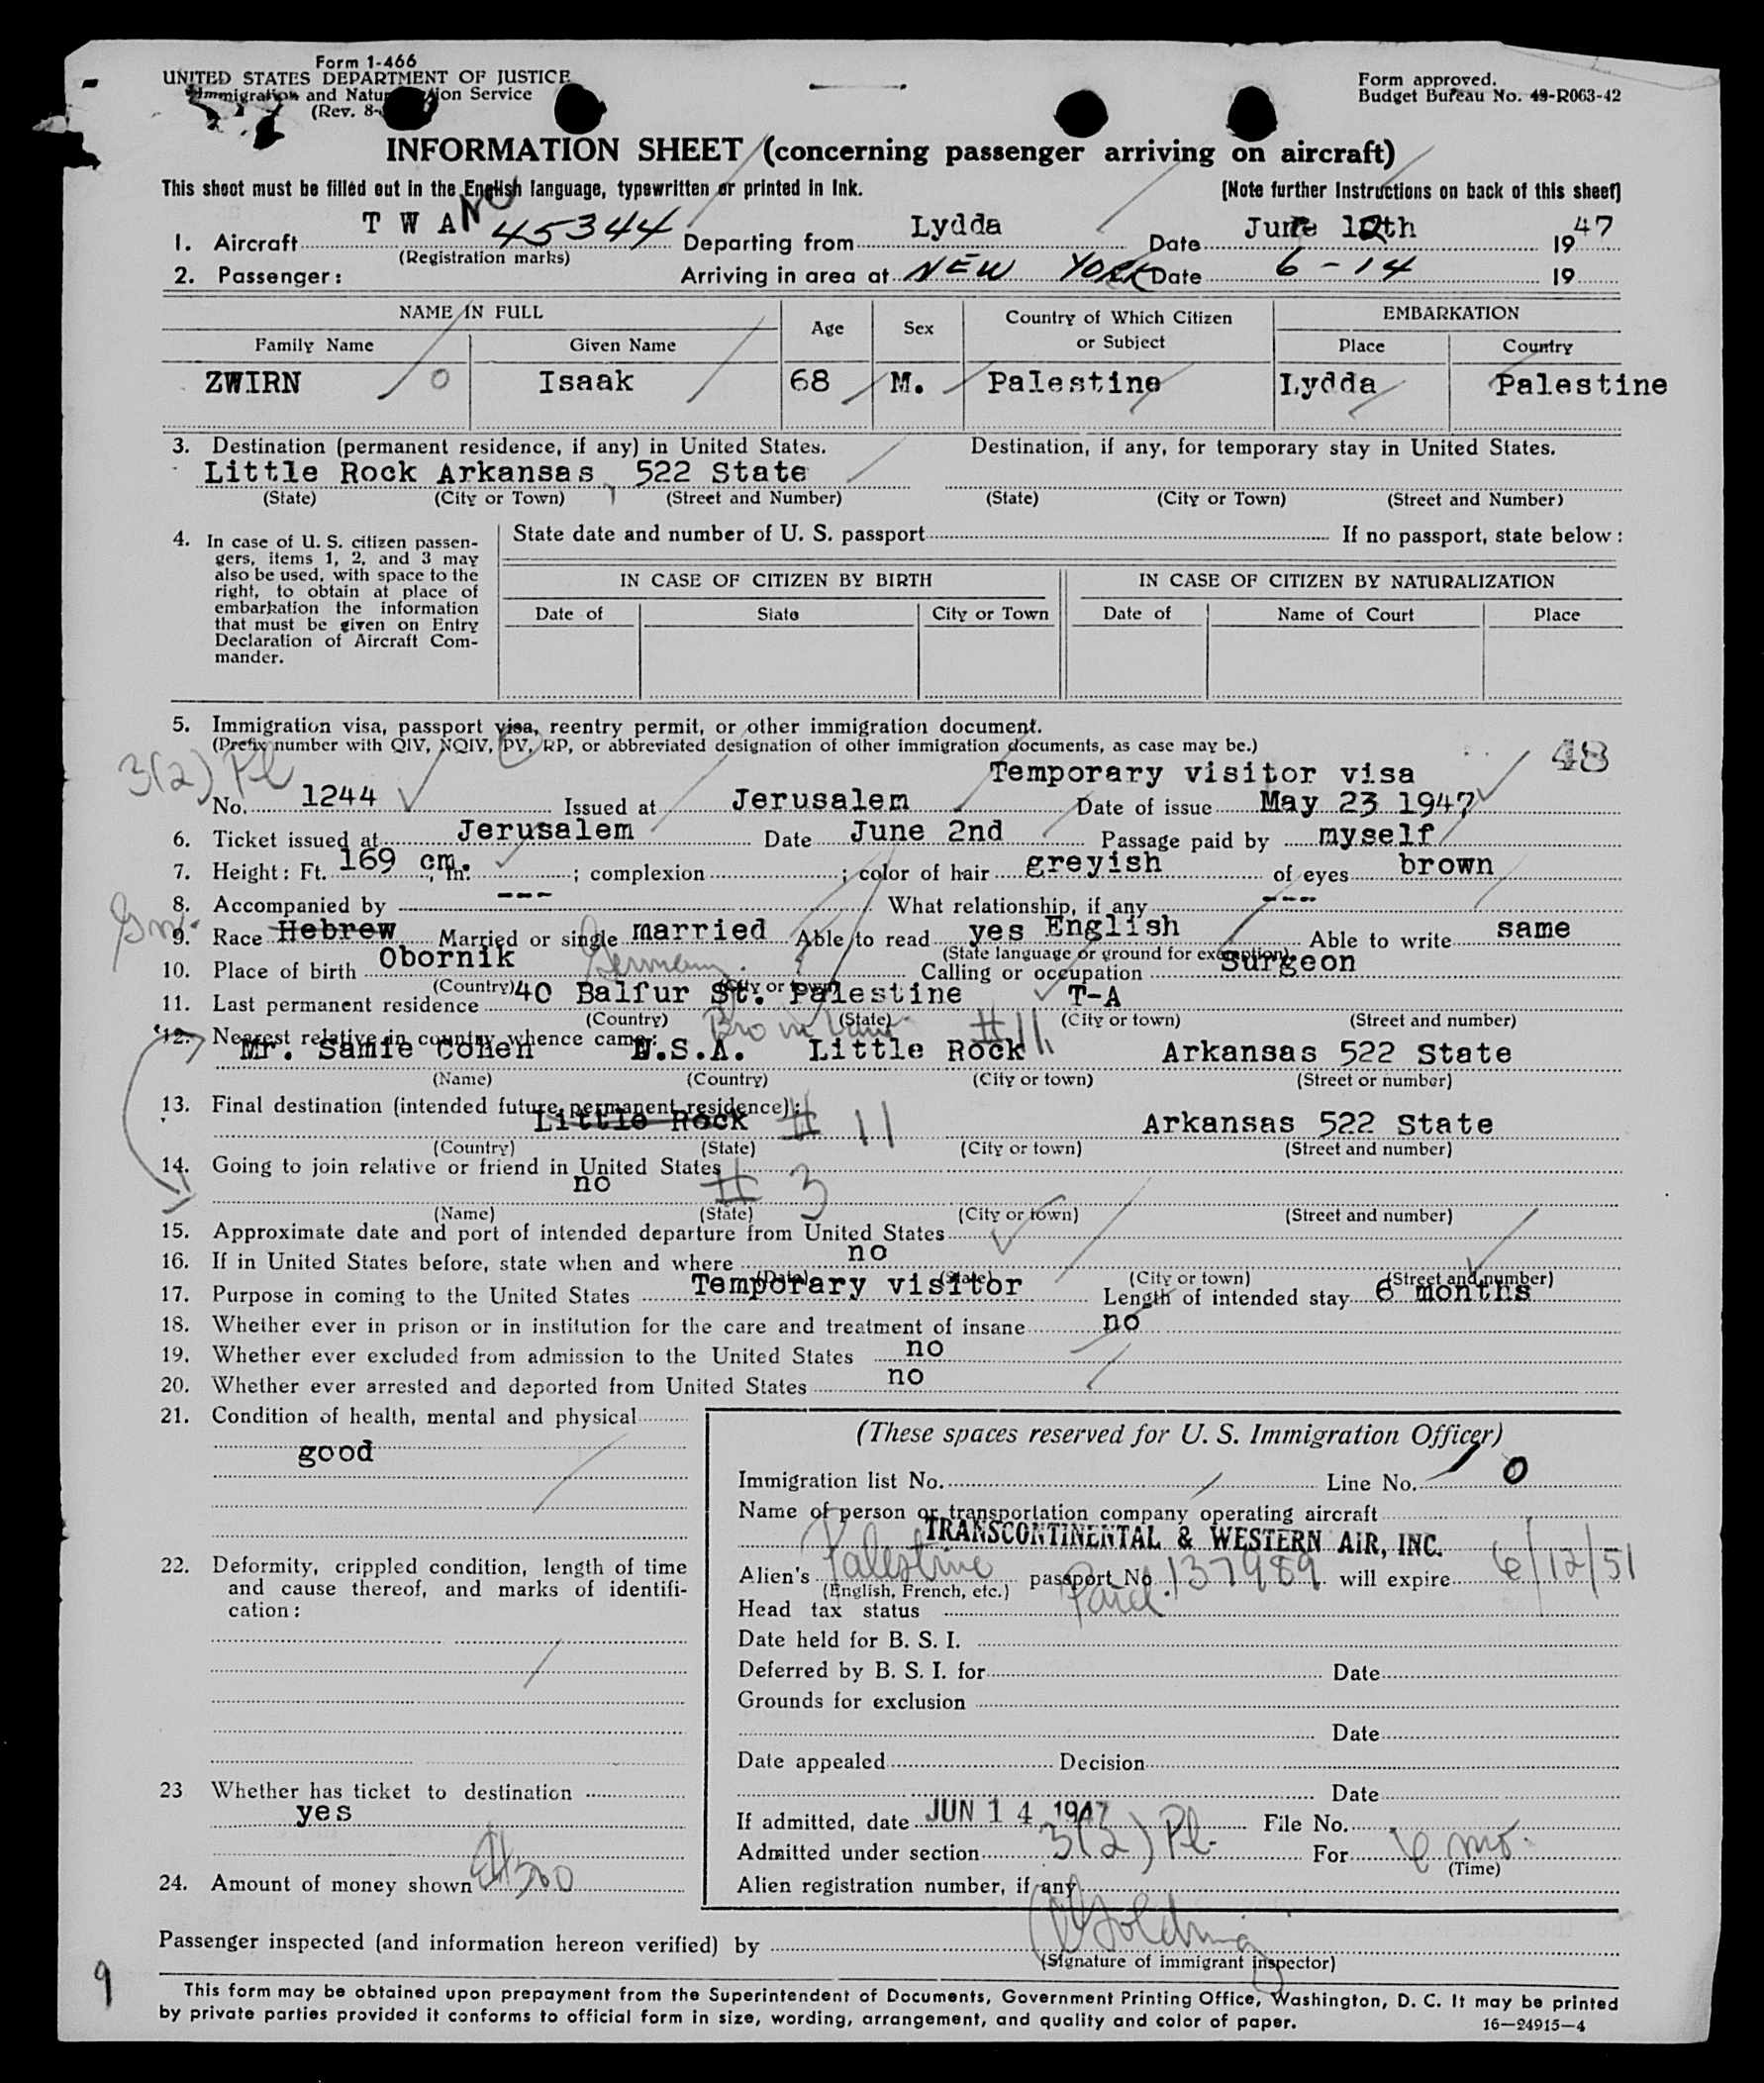 Form 1-466
UNITED STATES DEPARTMENT OF JUSTICE
Immigration and Natur tion Service
(Rev. 8-
Form approved.
Budget Bureau No. 43-R063-42
INFORMATION SHEET (concerning passenger arriving on aircraft)
This sheet must be filled out in the English language, typewritten or printed in ink.
(Note further instructions on back of this sheet)
1. Aircraft T W A NC 45344 Departing from Lydda Date June 12th 1947
(Registration marks)
2. Passenger: Arriving in area at NEW YORK Date 6-14 19
NAME IN FULL Age Sex Country of Which Citizen or Subject EMBARKATION
Family Name Given Name Place Country
ZWIRN 0 Isaak 68 M. Palestine Lydda Palestine
3. Destination (permanent residence, if any) in United States. Destination, if any, for temporary stay in United States.
Little Rock Arkansas, 522 State
(State) (City or Town) (Street and Number) (State) (City or Town) (Street and Number)
4. In case of U. S. citizen passen-
gers, items 1, 2, and 3 may
also be used, with space to the
right, to obtain at place of
embarkation the information
that must be given on Entry
Declaration of Aircraft Com-
mander.
State date and number of U. S. passport If no passport, state below:
IN CASE OF CITIZEN BY BIRTH IN CASE OF CITIZEN BY NATURALIZATION
Date of State City or Town Date of Name of Court Place
5. Immigration visa, passport visa, reentry permit, or other immigration document.
(Prefix number with QIV, NQIV, PV, RP, or abbreviated designation of other immigration documents, as case may be.)
3(2) Pl Temporary visitor visa 48
No. 1244 Issued at Jerusalem Date of issue May 23 1947
6. Ticket issued at Jerusalem Date June 2nd Passage paid by myself
7. Height: Ft. 169 cm. , In. ; complexion ; color of hair greyish of eyes brown
8. Accompanied by --- What relationship, if any ---
Gm.
9. Race Hebrew Married or single married Able to read yes English Able to write same
(State language or ground for exemption)
10. Place of birth Obornik Germany. Calling or occupation Surgeon
(Country) (City or town)
11. Last permanent residence 40 Balfur St. Palestine T-A
(Country) (State) (City or town) (Street and number)
12. Nearest relative in country whence came: Bro in law # 11
Mr. Samie Cohen U.S.A. Little Rock Arkansas 522 State
(Name) (Country) (City or town) (Street or number)
13. Final destination (intended future permanent residence):
Little Rock # 11 Arkansas 522 State
(Country) (State) (City or town) (Street and number)
14. Going to join relative or friend in United States
no # 3
(Name) (State) (City or town) (Street and number)
15. Approximate date and port of intended departure from United States
16. If in United States before, state when and where no
(Date) (State) (City or town) (Street and number)
17. Purpose in coming to the United States Temporary visitor Length of intended stay 6 months
18. Whether ever in prison or in institution for the care and treatment of insane no
19. Whether ever excluded from admission to the United States no
20. Whether ever arrested and deported from United States no
21. Condition of health, mental and physical
good
22. Deformity, crippled condition, length of time
and cause thereof, and marks of identifi-
cation:
23 Whether has ticket to destination
yes
24. Amount of money shown
(These spaces reserved for U. S. Immigration Officer)
Immigration list No. Line No. 10
Name of person or transportation company operating aircraft
TRANSCONTINENTAL & WESTERN AIR, INC.
Alien's Palestine passport No. 137989 will expire 6/12/51
(English, French, etc.)
Head tax status Paid.
Date held for B. S. I.
Deferred by B. S. I. for Date
Grounds for exclusion
Date
Date appealed Decision
Date
If admitted, date JUN 14 1947 File No.
Admitted under section 3(2) Pl. For 6 mo.
(Time)
Alien registration number, if any
Passenger inspected (and information hereon verified) by
(Signature of immigrant inspector)
9
This form may be obtained upon prepayment from the Superintendent of Documents, Government Printing Office, Washington, D. C. It may be printed
by private parties provided it conforms to official form in size, wording, arrangement, and quality and color of paper.
16—24915-4